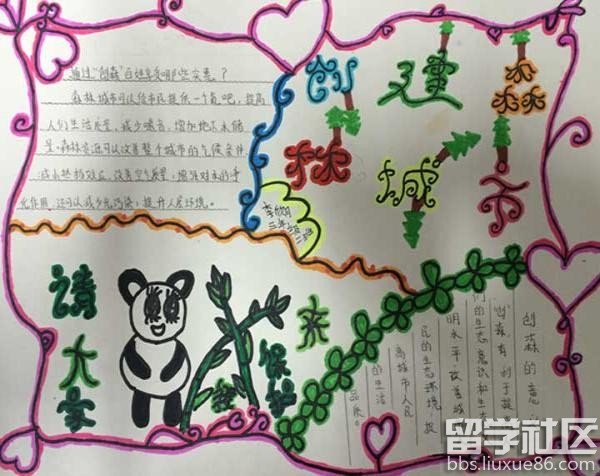 通过“创森”百姓享受哪些实惠？
森林城市可以给市民提供一个氧吧，提高
人们生活质量，减少噪音，增加地下水储
量，森林资源可以改善整个城市的气候条件
减小热岛效应，改善空气质量，增强对水的净
化作用，还可以减少光污染，提升人居环境。
创建森
林城市
李欣
三年级
二班
请大家
来
保护
创森的意
“创森”有利于提
们的生态意识和生
明水平改善城
民的生态环境，提
高城市人民
的生活
品质。
留学社区
bbs.liuxue86.com